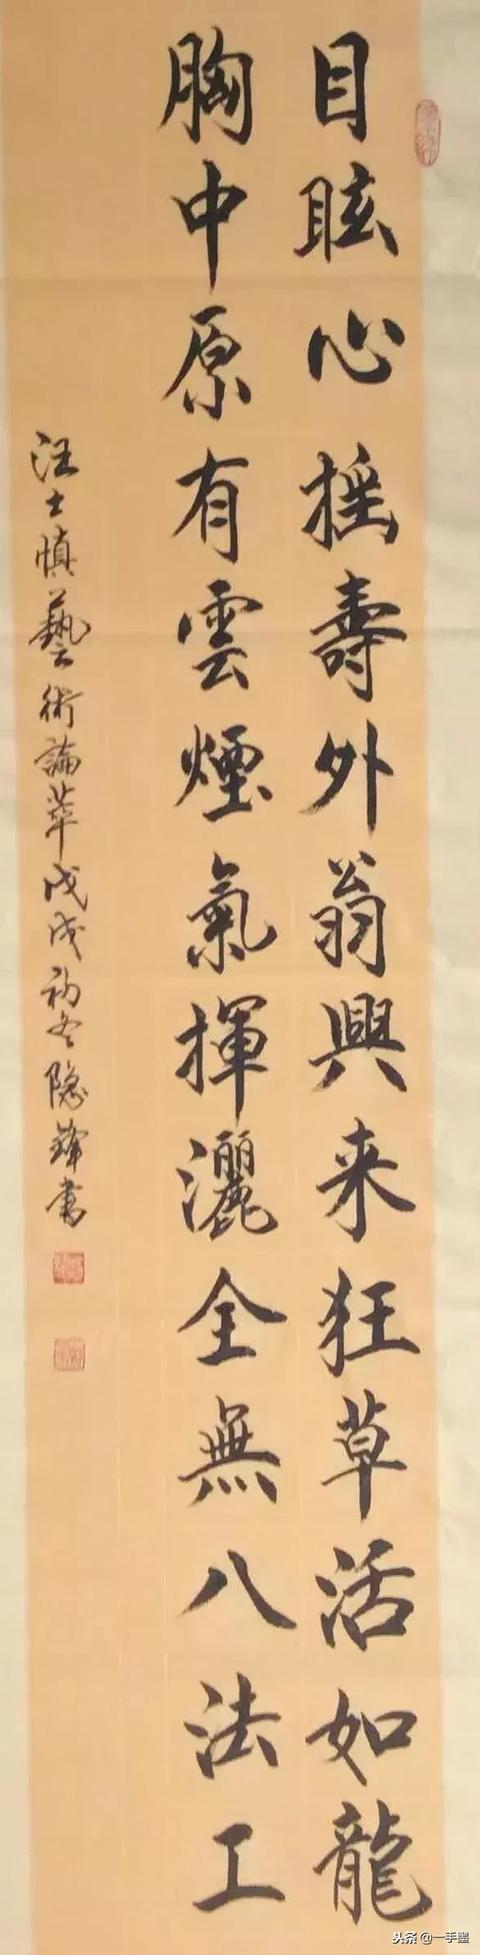 目眩心摇壽外翁興来狂草活如龍
胸中原有雲煙氣揮灑全無八法工
汪士慎藝術論萃戊戌初冬隐鋒書
头条@一手墨